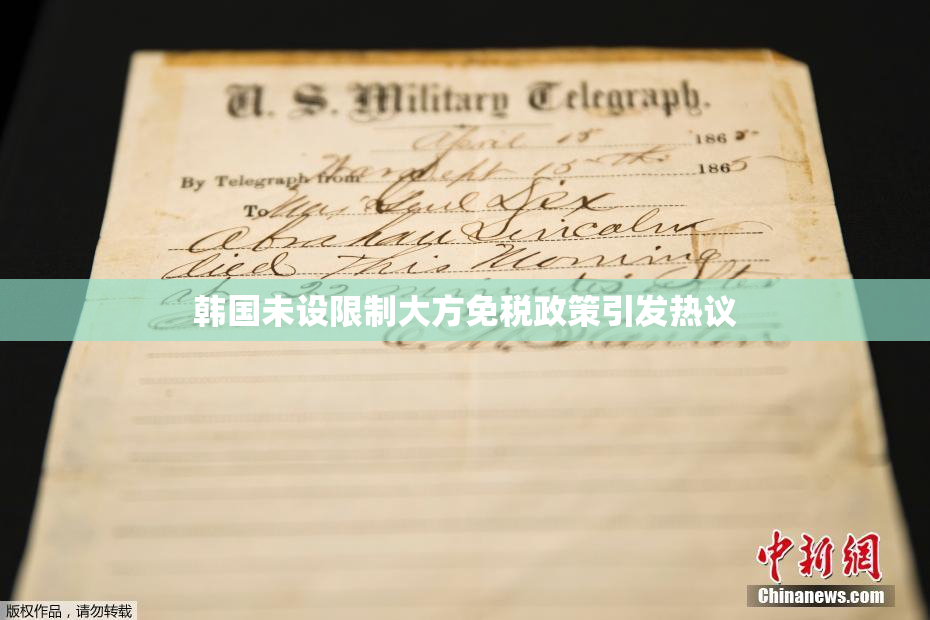 U. S. Military Telegraph.
April 15 1865
By Telegraph from War Dept 15th 1865
To Maj Genl Dix
Abraham Lincoln
died This Morning
at 22 minutes after
韩国未设限制大方免税政策引发热议
E. M. Stanton
中新网
Chinanews.com
版权作品，请勿转载